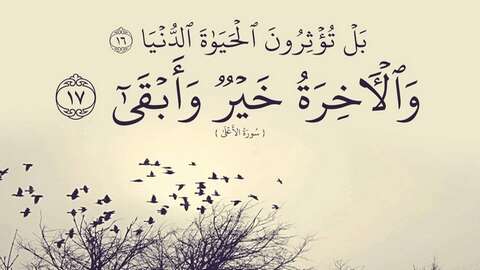 بَلْ تُؤْثِرُونَ ٱلْحَيَوٰةَ ٱلدُّنْيَا ١٦
وَٱلْأَخِرَةُ خَيْرٌ وَأَبْقَىٰٓ ١٧
{ سُورَةُ الأَعْلَىٰ }